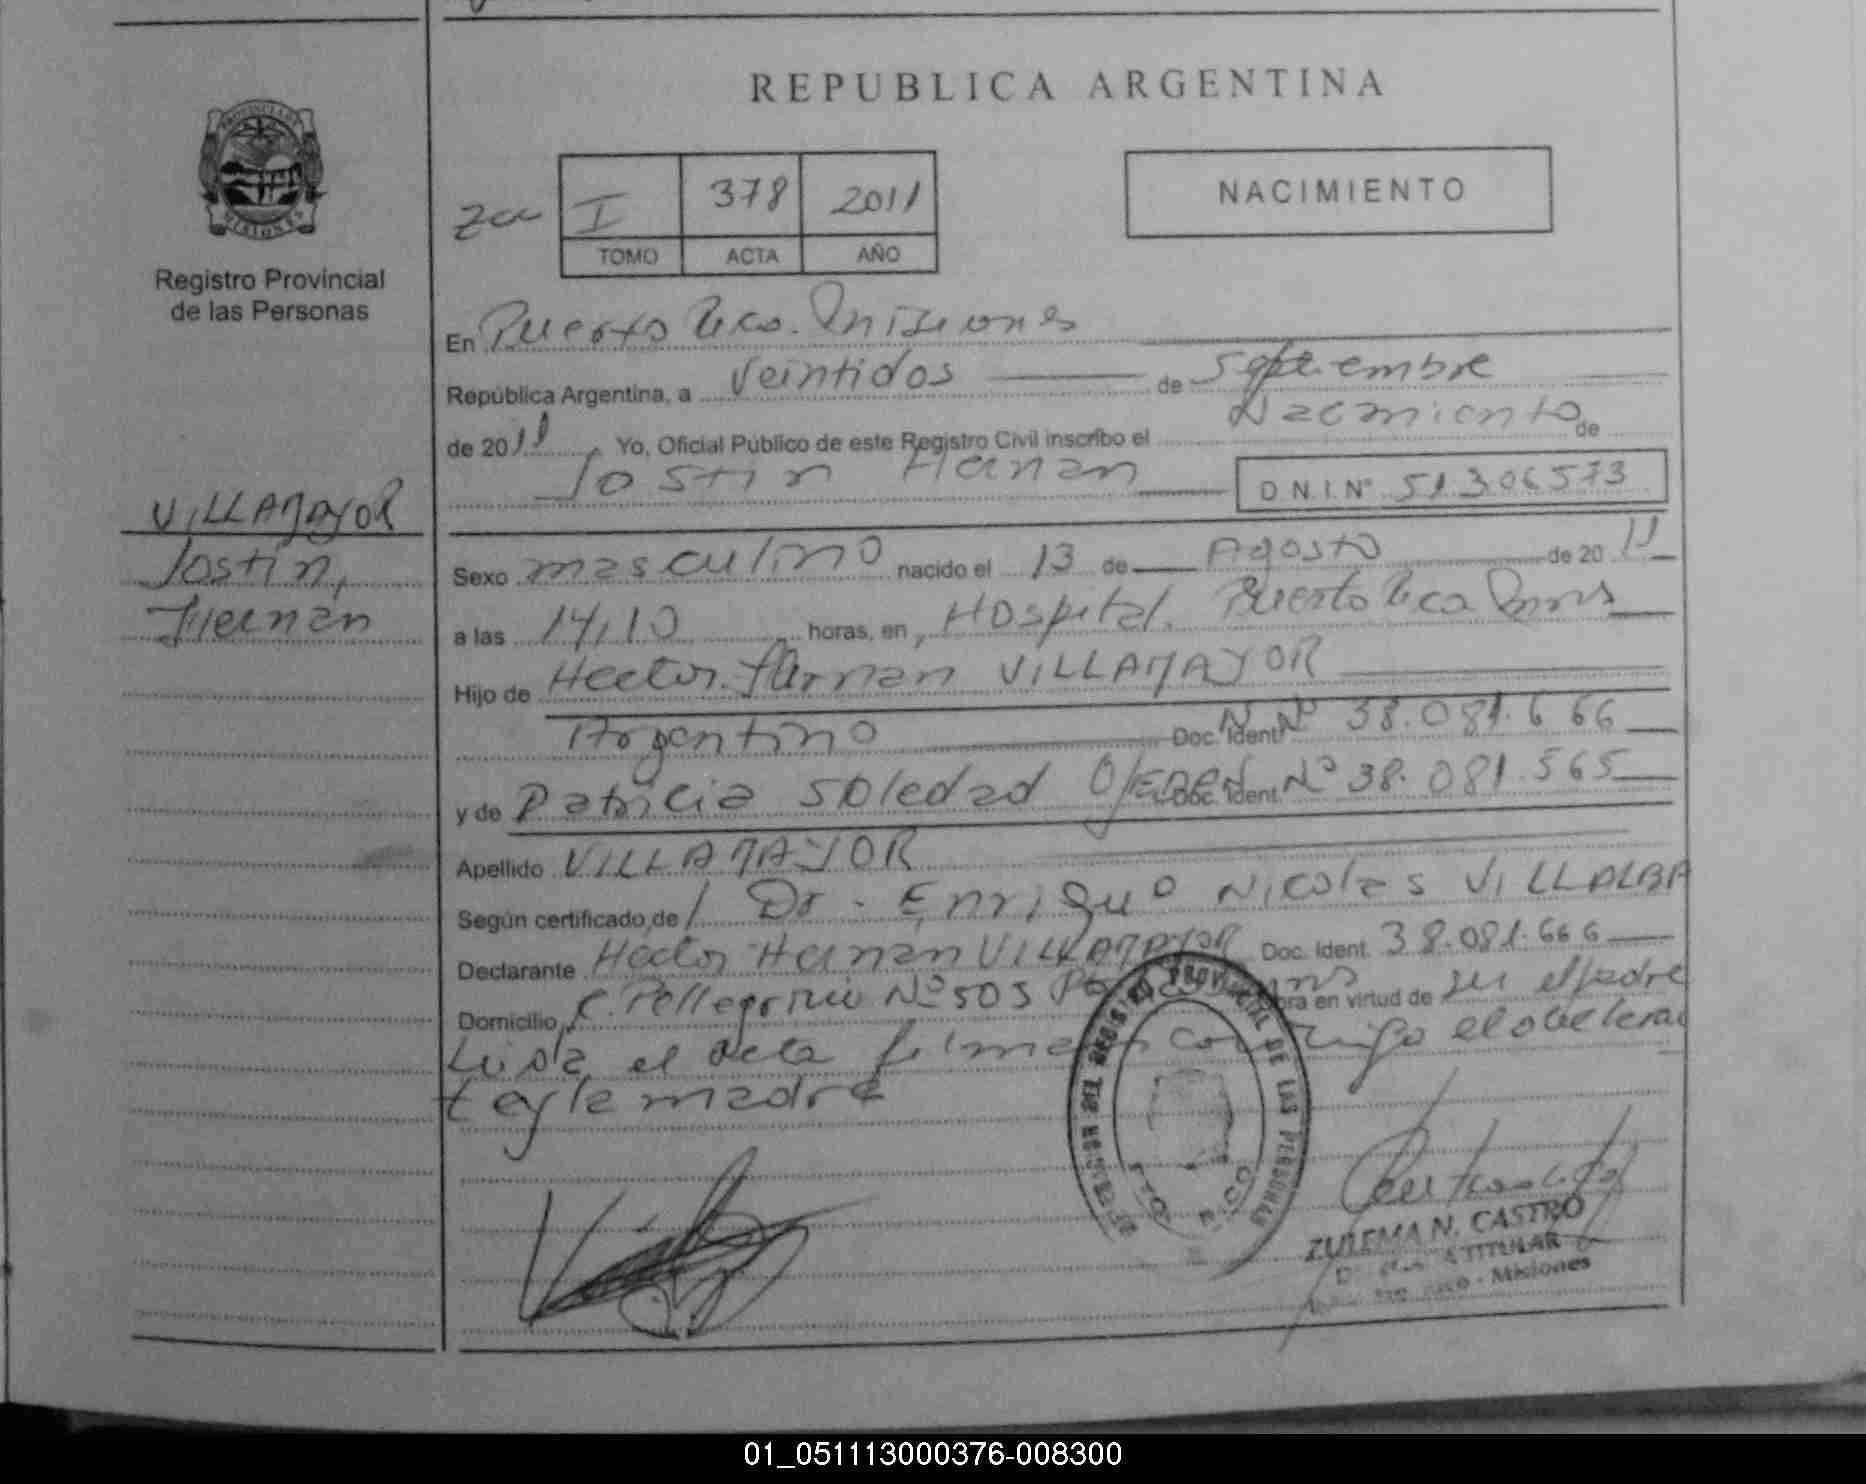 REPUBLICA ARGENTINA
PROVINCIA DE
MISIONES
Registro Provincial
de las Personas
I 378 2011
TOMO ACTA AÑO
NACIMIENTO
En Puerto Rico. Misiones
República Argentina, a Veintidos de Septiembre
de 2011 Yo, Oficial Público de este Registro Civil inscribo el Nacimiento de
Jostin Hernan D.N.I. Nº 51306573
VILLAMAYOR
Jostin,
Hernan
Sexo masculino nacido el 13 de Agosto de 2011
a las 14,10 horas, en, Hospital. Puerto Rico Mnes
Hijo de Hector Hernan VILLAMAYOR
Argentino Doc. Ident. Nº 38.081.666
y de Patricia Soledad OJEDA Doc. Ident. Nº 38.081.565
Apellido VILLAMAYOR
Según certificado de Dr. Enrique Nicolas VILLALBA
Declarante Hector Hernan VILLAMAYOR Doc. Ident. 38.081.666
Domicilio C. Pellegrini Nº 505 obra en virtud de ser el padre
Leida el acta firman conmigo el declaran
te y la madre
REGISTRO PROVINCIAL DE LAS PERSONAS
ZULEMA N. CASTRO
TITULAR
Misiones
01_051113000376-008300